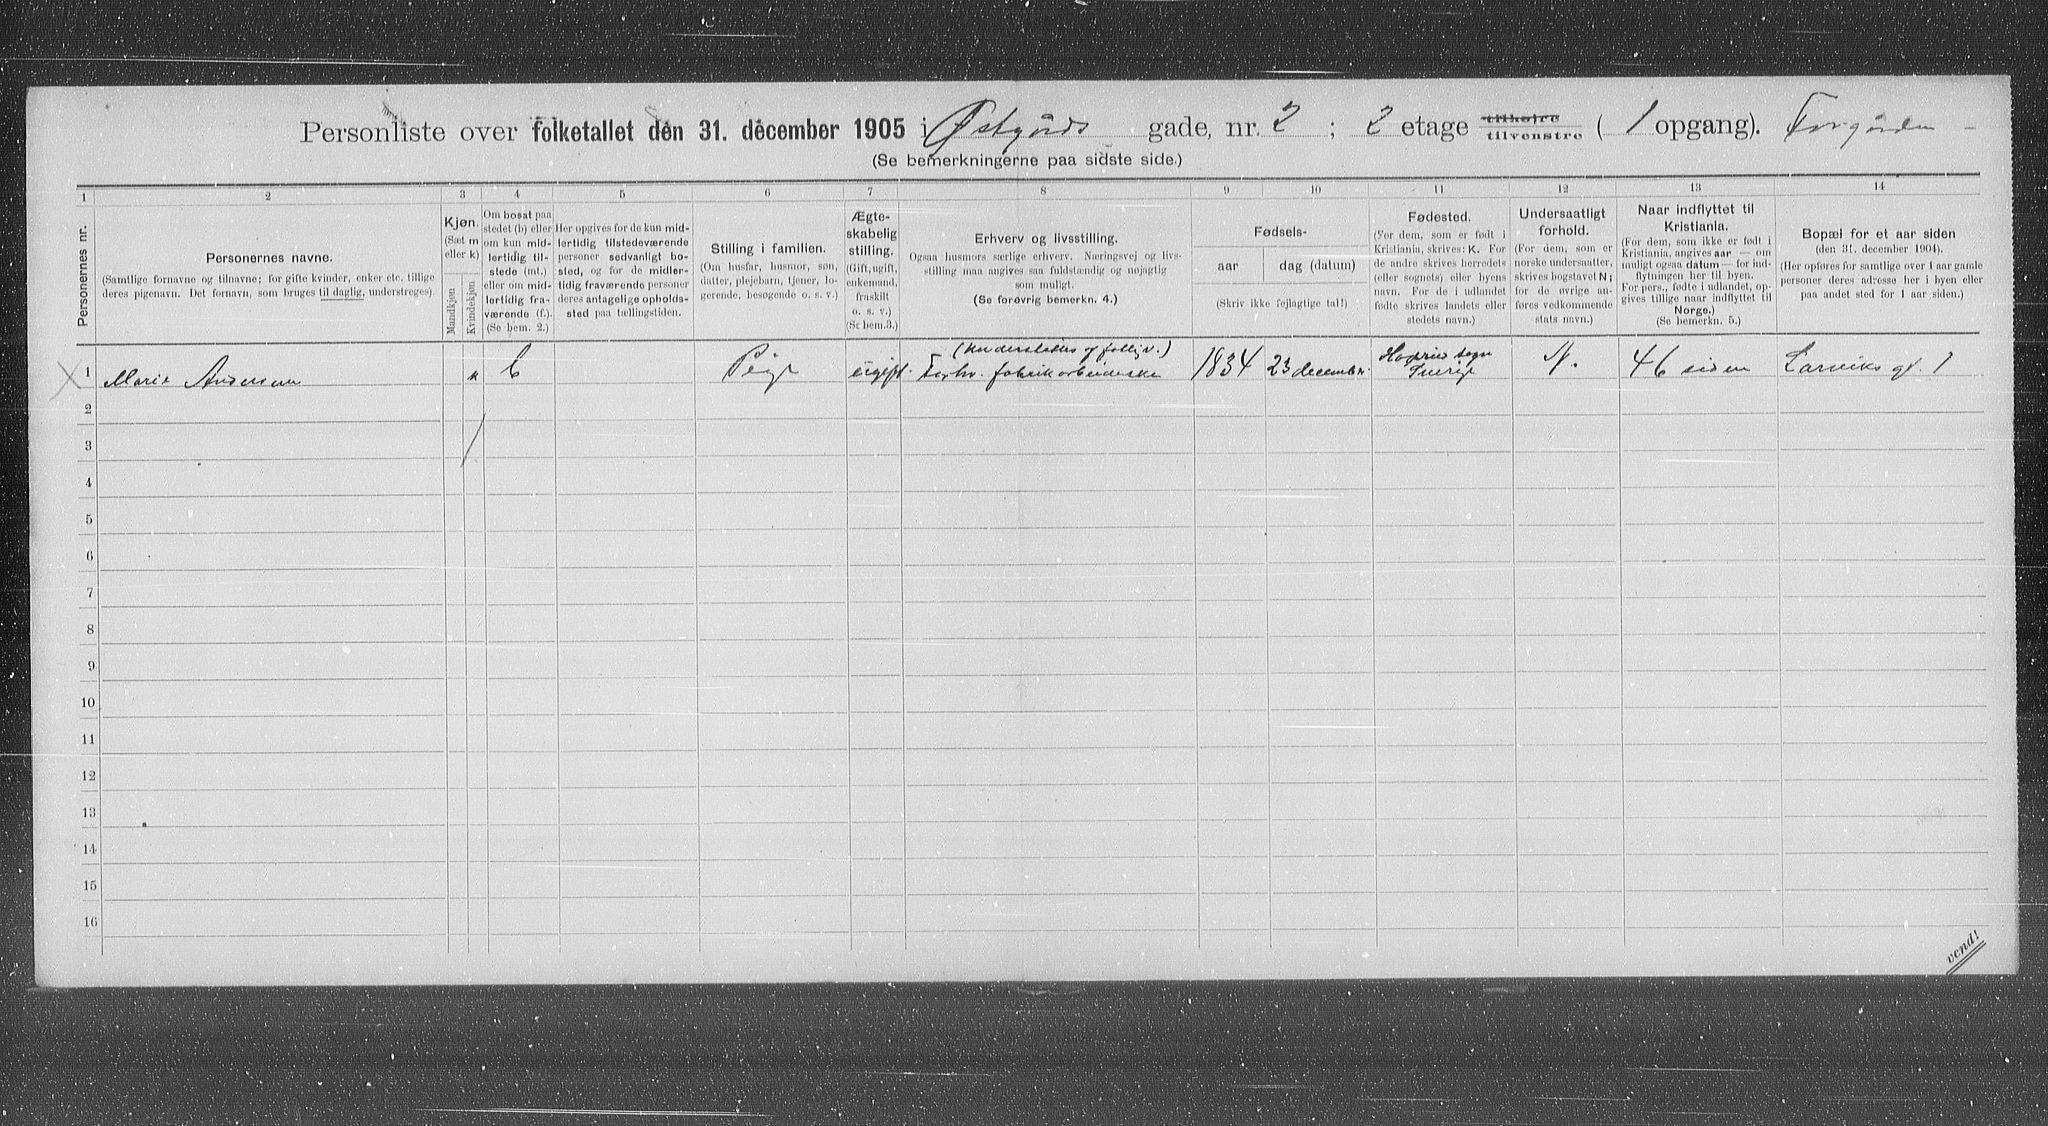 Personliste over folketallet den 31. december 1905 i Østgårds gade, nr. 2 ; 2 etage tilhøire tilvenstre ( 1 opgang). Forgården
(Se bemerkningerne paa sidste side.)
1 2 3 4 5 6 7 8 9 10 11 12 13 14
Personernes nr.
Personernes navne.
(Samtlige fornavne og tilnavne; for gifte kvinder, enker etc. tillige
deres pigenavn. Det fornavn, som bruges til daglig, understreges)
Kjøn.
(Sæt m
eller k)
Mandkjøn
Kvindekjøn
Om bosat paa
stedet (b) eller
om kun mid-
lertidig til-
stede (mt.)
eller om mid-
lertidig fra-
værende (f.).
(Se bem. 2.)
Her opgives for de kun mid-
lertidig tilstedeværende
personer sedvanligt bo-
sted, og for de midler-
tidig fraværende personer
deres antagelige opholds-
sted paa tællingstiden.
Stilling i familien.
(Om husfar, husmor, søn,
datter, plejebarn, tjener, lo-
gerende, besøgende o. s. v.)
Ægte-
skabelig
stilling.
(Gift, ugift,
enkemand,
fraskilt
o. s. v.)
(Se bem.3.)
Erhverv og livsstilling.
Ogsaa husmors særlige erhverv. Næringsvej og livs-
stilling maa angives saa fuldstændig og nøjagtig
som muligt.
(Se forøvrig bemerkn. 4.)
Fødsels-
aar
dag (datum)
(Skriv ikke fejlagtige tal!)
Fødested.
(For dem, som er født i
Kristiania, skrives: K. For
de andre skrives herredets
(eller sognets) eller byens
navn. For de i udlandet
fødte skrives landets eller
stedets navn.)
Undersaatligt
forhold.
(For dem, som er
norske undersaatter,
skrives bogstavet N;
for de øvrige an-
føres vedkommende
stats navn.)
Naar indflyttet til
Kristiania.
(For dem, som ikke er født i
Kristiania, angives aar — om
muligt ogsaa datum — for ind-
flytningen her til byen.
For pers., født i udlandet, op-
gives tillige naar indflyttet til
Norge.)
(Se bemerkn. 5.)
Bopæl for et aar siden
(den 31. december 1904).
(Her opføres for samtlige over 1 aar gamle
personer deres adresse her i byen eller
paa andet sted for 1 aar siden.)
(Understøttes af fattigv.)
1 Marie Andersen k b Pige ugift. Forhv. fabrikarbeiderske 1834 23 december sogn N. 46 siden Larviks gd. 1
2
3
4
5
6
7
8
9
10
11
12
13
14
15
16
vend!